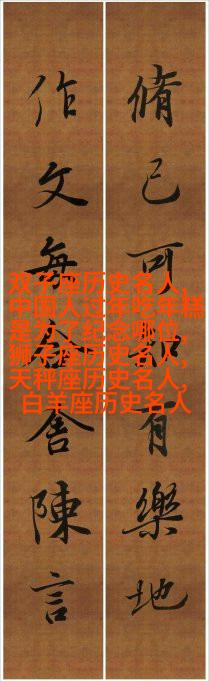 脩己可有樂地
作文每舍陳言
双子座历史名人,
中国人过年吃年糕
是为了纪念哪位,
狮子座历史名人,
天秤座历史名人,
白羊座历史名人